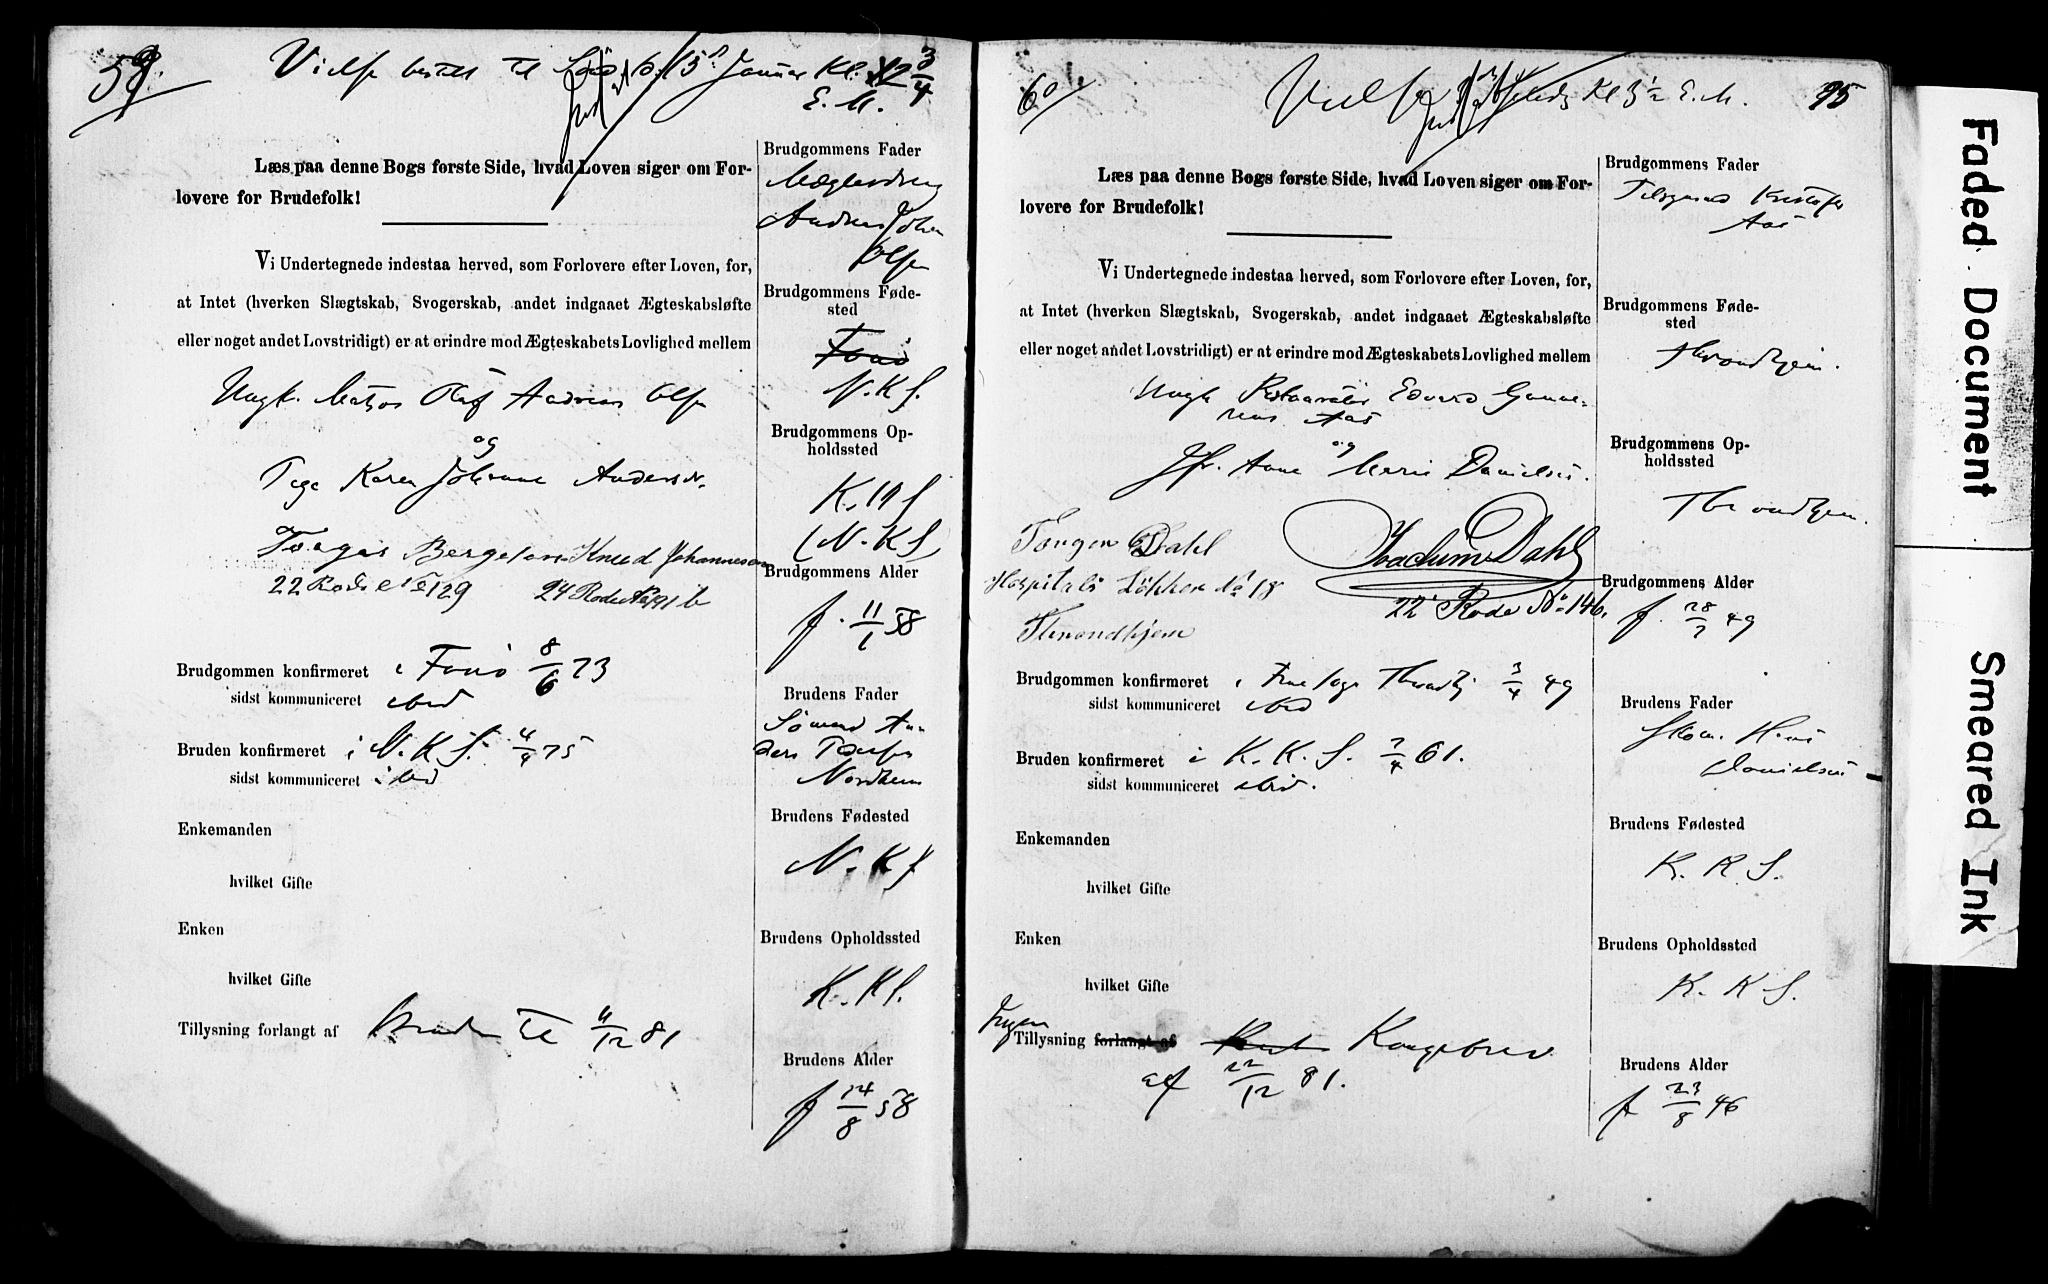 59.
Vielse bestilt til Januar Kl. 12 3/4
E. M.
Læs paa denne Bogs første Side, hvad Loven siger om For-
lovere for Brudefolk!
Vi Undertegnede indestaa herved, som Forlovere efter Loven, for,
at Intet (hverken Slægtskab, Svogerskab, andet indgaaet Ægteskabsløfte
eller noget andet Lovstridigt) er at erindre mod Ægteskabets Lovlighed mellem
Ungk. Matros Olaf Andreas Olsen
og
Pige Karen Johanne Andersdr.
Torger Bergersen Knud Johannesen
22 Rode No 129 24 Rode No 191 b
Brudgommen konfirmeret i 8/6 73
sidst kommuniceret ibid
Bruden konfirmeret i N. K. S. 4/4 75
sidst kommuniceret ibid
Enkemanden
hvilket Gifte
Enken
hvilket Gifte
Tillysning forlangt af Bruden til 11/12 81
Brudgommens Fader
Andreas Johan
Olsen
Brudgommens Føde-
sted
N. K. S.
Brudgommens Op-
holdssted
K. K S
(N. K S)
Brudgommens Alder
f. 11/1 58
Brudens Fader
Sømand An-
ders
Nordheim
Brudens Fødested
N. K S
Brudens Opholdssted
K. K S.
Brudens Alder
f 14/8 58
60.
Vielse Kl 5 1/2 E. M.
95
Læs paa denne Bogs første Side, hvad Loven siger om For-
lovere for Brudefolk!
Vi Undertegnede indestaa herved, som Forlovere efter Loven, for,
at Intet (hverken Slægtskab, Svogerskab, andet indgaaet Ægteskabsløfte
eller noget andet Lovstridigt) er at erindre mod Ægteskabets Lovlighed mellem
Ungk. Restauratør Edvard Gunne-
rius Aas
og
Jfr. Anne Marie Danielsen.
Torger Dahl
Joachim Dahl
Hospitals Løkken No 18
22 Rode No 146.
Throndhjem
Brudgommen konfirmeret i Throndhj 3/4 49
sidst kommuniceret ibid
Bruden konfirmeret i K. K. S. 7/4 61.
sidst kommuniceret ibid.
Enkemanden
hvilket Gifte
Enken
hvilket Gifte
Ingen
Tillysning forlangt af Kongebrev
af 22/12 81.
Brudgommens Fader
Kristofer
Aas
Brudgommens Føde-
sted
Throndhjem.
Brudgommens Op-
holdssted
Throndhjem.
Brudgommens Alder
f. 28/7 49
Brudens Fader
Skom. Hans
Danielsen
Brudens Fødested
K. K. S.
Brudens Opholdssted
K. K S.
Brudens Alder
f 23/8 46
Faded Document
Smeared Ink